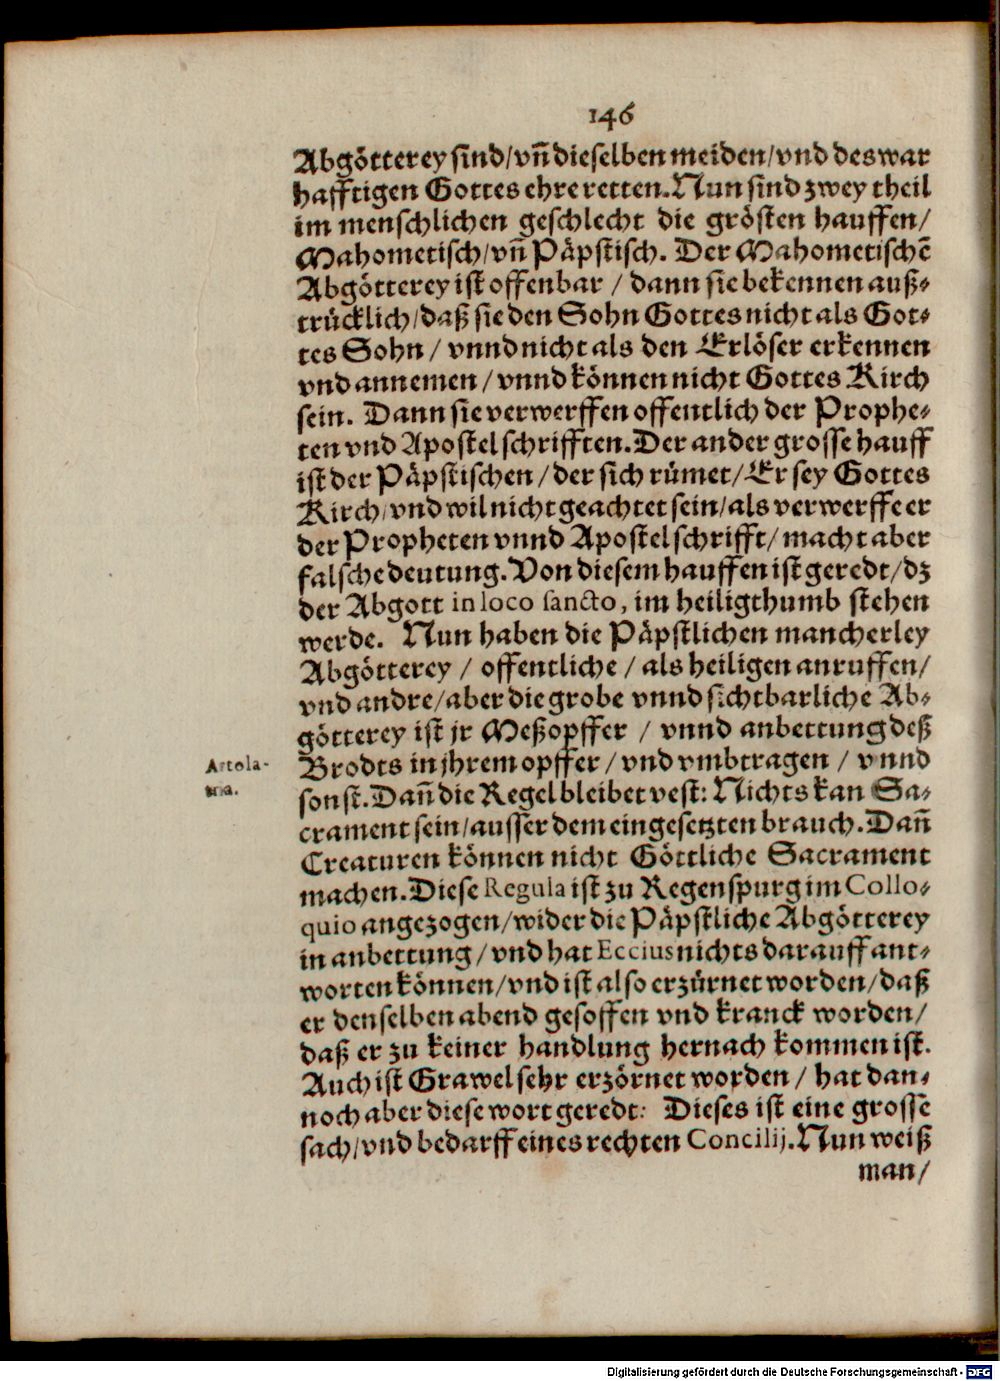 146
Abgötterey sind/vñ dieselben meiden/vnd des war
hafftigen Gottes ehre retten. Nun sind zwey theil
im menschlichen geschlecht die grösten hauffen/
Mahometisch/vñ Päpstisch. Der Mahometischē
Abgötterey ist offenbar / dann sie bekennen auß-
trücklich/daß sie den Sohn Gottes nicht als Got-
tes Sohn / vnnd nicht als den Erlöser erkennen
vnd annemen / vnnd können nicht Gottes Kirch
sein. Dann sie verwerffen offentlich der Prophe-
ten vnd Apostel schrifften. Der ander grosse hauff
ist der Päpstischen / der sich rümet/ Er sey Gottes
Kirch/vnd wil nicht geachtet sein/als verwerffe er
der Propheten vnnd Apostel schrifft/ macht aber
falsche deutung. Von diesem hauffen ist geredt/dz
der Abgott in loco sancto, im heiligthumb stehen
werde. Nun haben die Päpstlichen mancherley
Abgötterey / offentliche / als heiligen anruffen/
vnd andre/aber die grobe vnnd sichtbarliche Ab-
götterey ist jr Meßopffer / vnnd anbettung deß
Artola-
Brodts in jhrem opffer/vnd vmbtragen / vnnd
tria.
sonst. Dañ die Regel bleibet vest: Nichts kan Sa-
crament sein/ausser dem eingesetzten brauch. Dañ
Creaturen können nicht Göttliche Sacrament
machen. Diese Regula ist zu Regenspurg im Collo-
quio angezogen/wider die Päpstliche Abgötterey
in anbettung/vnd hat Eccius nichts darauff ant-
worten können/vnd ist also erzürnet worden/daß
er denselben abend gesoffen vnd kranck worden/
daß er zu keiner handlung hernach kommen ist.
Auch ist Grawel sehr erzörnet worden / hat dan-
noch aber diese wort geredt: Dieses ist eine grosse
sach/vnd bedarff eines rechten Concilij. Nun weiß
man/
Digitalisierung gefördert durch die Deutsche Forschungsgemeinschaft - DFG